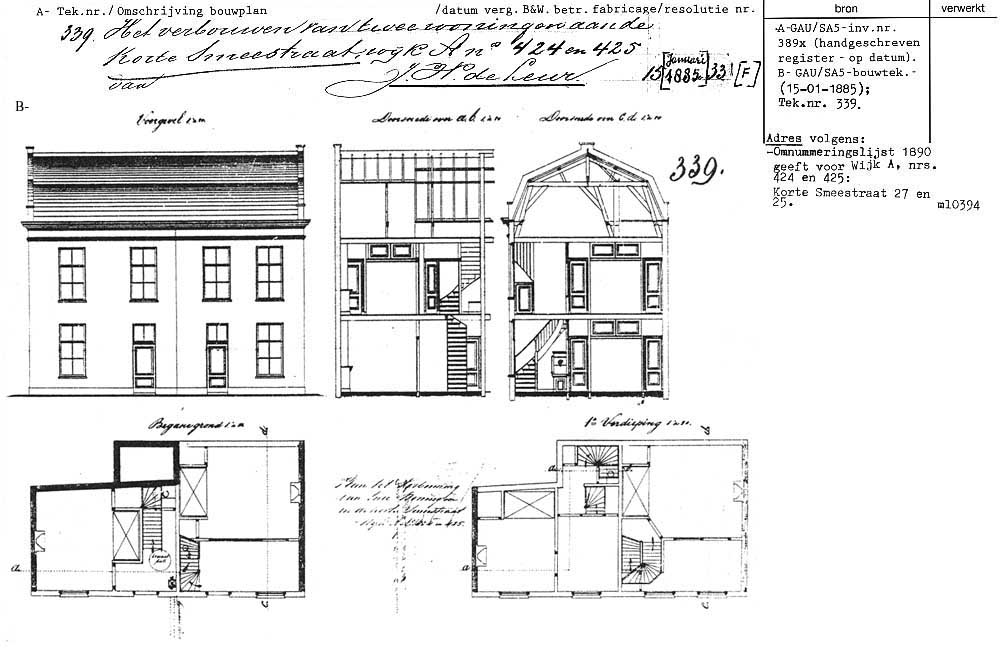 A- Tek.nr./Omschrijving bouwplan /datum verg. B&W. betr. fabricage/resolutie nr.
339. Het verbouwen van twee woningen aan de
Korte Smeestraat, wijk A nº 424 en 425
van J. H. de Leur.
15 [Januari 1885] 33 [F]
bron verwerkt
A-GAU/SA5-inv.nr.
389x (handgeschreven
register - op datum).
B- GAU/SA5-bouwtek.-
(15-01-1885);
Tek.nr. 339.
Adres volgens:
-Omnummeringslijst 1890
geeft voor Wijk A, nrs.
424 en 425:
Korte Smeestraat 27 en
25.
m10394
B-
Voorgevel
Doorsnede over a.b.
Doorsnede over c.d.
339.
Begane grond
1e Verdieping
a
a
a